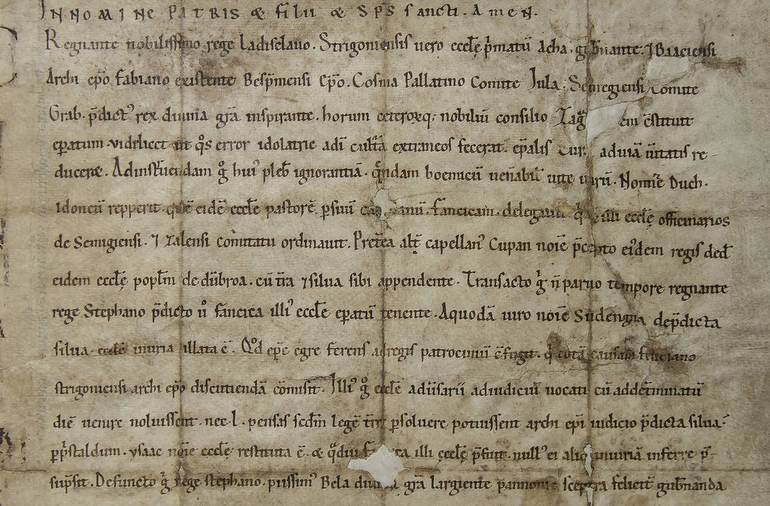 INNOMINE PATRIS & filii & sp̄s sancti. Amen.
Regnante nobilissimo rege Ladisclauo. Strigoniensis uero eccłę p̄matū Acha. gub̄nante. ⁊ Baaciensi
Archi ep̄o fabiano existente Besp̄mensi ep̄o. Cosma Pallatino Comite Jula. Semegiensi Comite
Grab. p̄dict᷒ rex diuina gr̄a inspirante. horum ceterorq; nobiliū consilio Zag em cstituit
ep̄atum. uidelicet ut q̊s error idolatrie ad dī cultū extraneos fecerat. ep̄alis cura aduiā ūitatis re-
ducere. Adinstruendam g̊ hui᷒ pleb̄ ignorantiā. quendam boemicū uenabilē uite uirū. Nomīe Duch.
idoneū repperit. quē eidē eccłę pastorē. p̄suum manū. fancicam. delegauit illi eccłę officinarios
de Semigiensi. ⁊ Zalensi comitatu ordinauit. Pret̄ea alt̄ capellan᷒ Cupan noīe p̄cepto ei᷒dem regis ded̄
eidem eccłę popłm de dūbroa. cū tr̄a ⁊ silua sibi appendente. Transacto g̊ ñ paruo tempore regnante
rege Stephano p̄dicto ů fancica illi᷒ eccłę ep̄atū tenente. Aquodā uiro noīe Sudengia dep̄dicta
silua eccłę iniuria illata ē. Q̊d ep̄c egre ferens adregis patrociniū cfugit. q̊ totā causam feliciano
strigoniensi archi ep̄o discutiendā cōmisit. Illi᷒ g̊ eccłę adūsarii adiudiciū uocati cū addet̄minatū
diē uenire noluissent. nec l. pensas scdm legē tr̄e p̄soluere potuissent archi ep̄i iudicio p̄dicta silua
p pristaldum. ysaac noīe eccłę restituta ē. & illi eccłę p̄fuit. null᷒ ei aliq̄ iniuriā inferre p̄-
sup̄sit. Defuncto g̊ rege stephano. piissim᷒ Bela diuina gr̄a largiente pannonie sceptra felicit̄ gub̄nanda